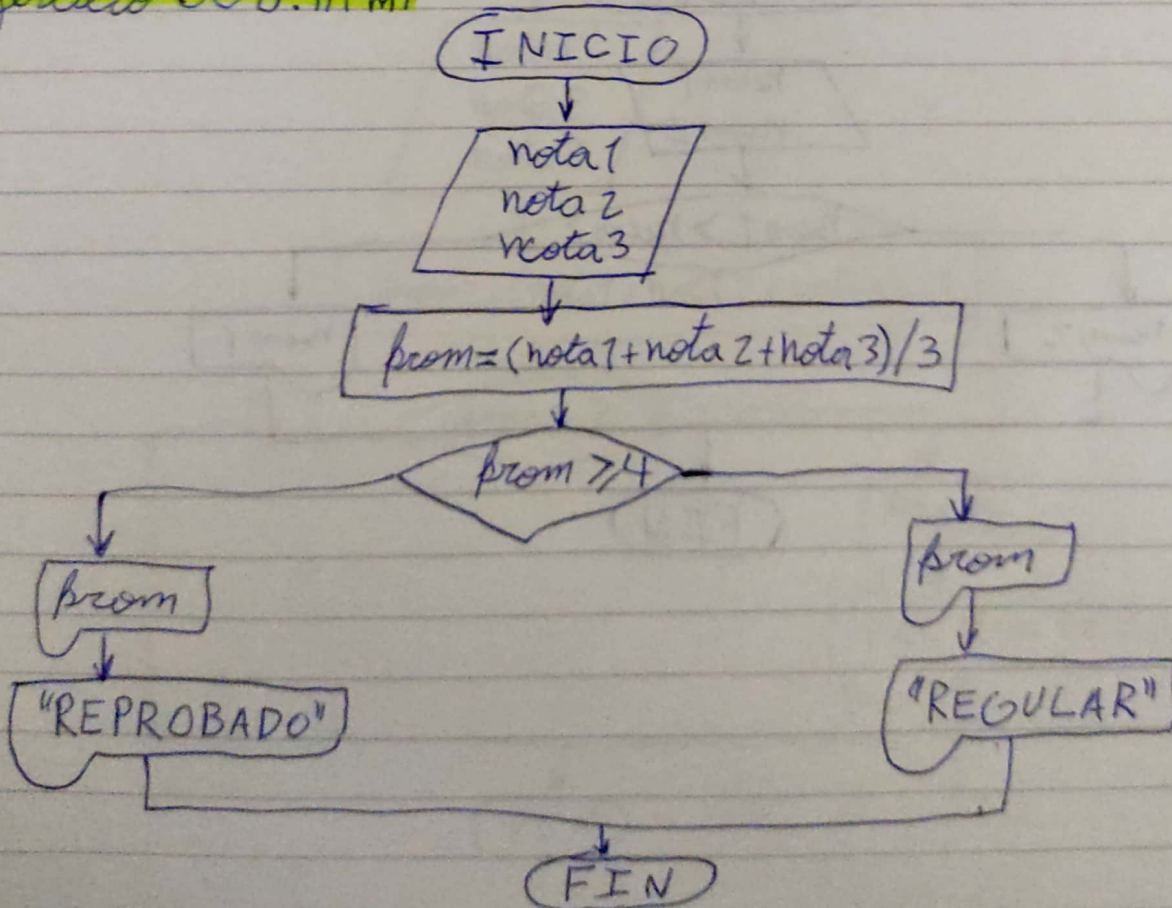 INICIO
nota1
nota2
nota3
prom=(nota1+nota2+nota3)/3
prom ≥ 4
prom
prom
"REPROBADO"
"REGULAR"
FIN